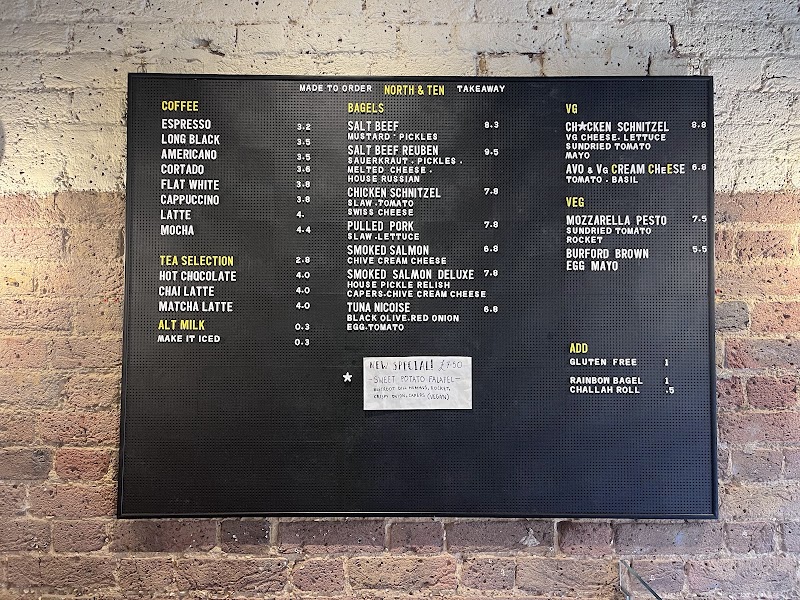 MADE TO ORDER NORTH & TEN TAKEAWAY
COFFEE
ESPRESSO 3.2
LONG BLACK 3.5
AMERICANO 3.5
CORTADO 3.6
FLAT WHITE 3.8
CAPPUCCINO 3.8
LATTE 4.
MOCHA 4.4
TEA SELECTION 2.8
HOT CHOCOLATE 4.0
CHAI LATTE 4.0
MATCHA LATTE 4.0
ALT MILK 0.3
MAKE IT ICED 0.3
BAGELS
SALT BEEF 8.3
MUSTARD · PICKLES
SALT BEEF REUBEN 9.5
SAUERKRAUT · PICKLES ·
MELTED CHEESE ·
HOUSE RUSSIAN
CHICKEN SCHNITZEL 7.8
SLAW · TOMATO
SWISS CHEESE
PULLED PORK 7.8
SLAW · LETTUCE
SMOKED SALMON 6.8
CHIVE CREAM CHEESE
SMOKED SALMON DELUXE 7.8
HOUSE PICKLE RELISH
CAPERS-CHIVE CREAM CHEESE
TUNA NICOISE 6.8
BLACK OLIVE. RED ONION
EGG·TOMATO
NEW SPECIAL! £7.50
-SWEET POTATO FALAFEL-
BEETROOT DILL HUMMUS, ROCKET,
CRISPY ONION, CAPERS (VEGAN)
VG
CH★CKEN SCHNITZEL 8.8
VG CHEESE. LETTUCE
SUNDRIED TOMATO
MAYO
AVO & VG CREAM CHEESE 6.8
TOMATO · BASIL
VEG
MOZZARELLA PESTO 7.5
SUNDRIED TOMATO
ROCKET
BURFORD BROWN 5.5
EGG MAYO
ADD
GLUTEN FREE 1
RAINBOW BAGEL 1
CHALLAH ROLL .5